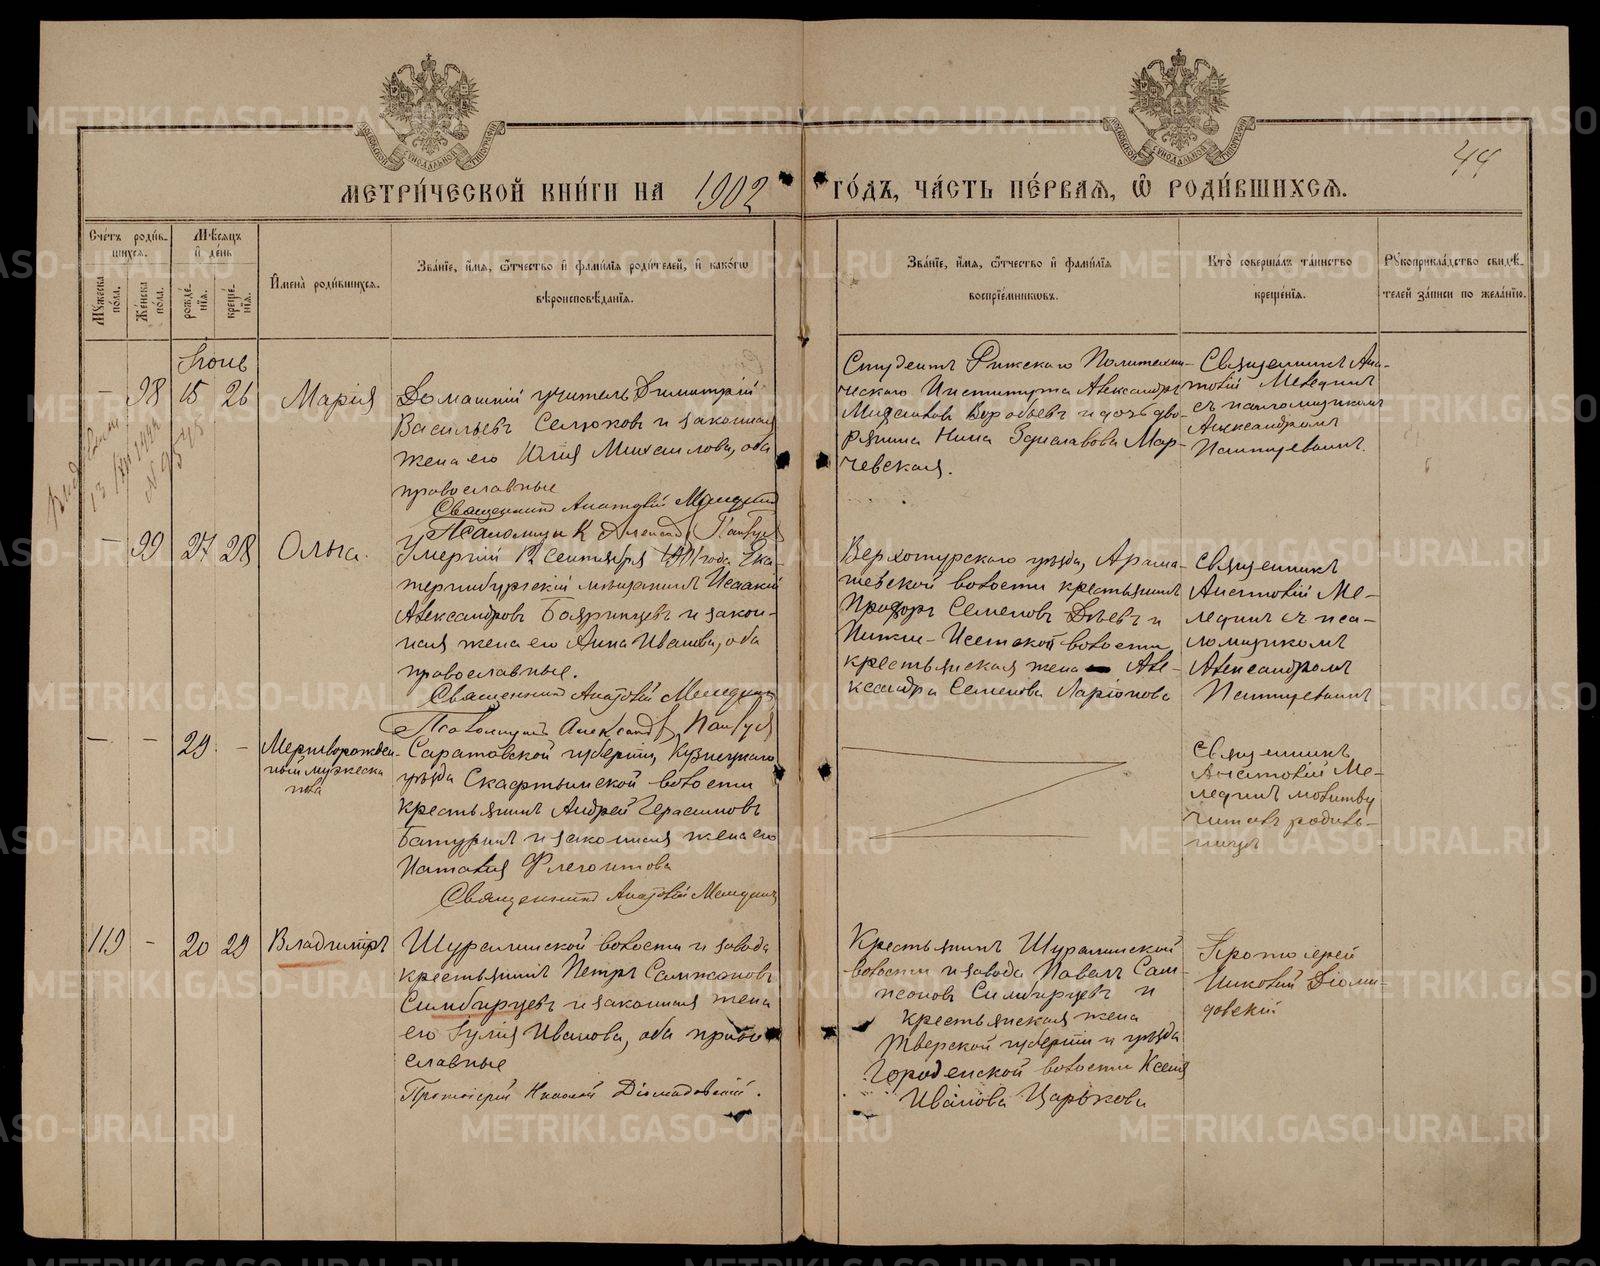 МЕТРИ́ЧЕСКОЙ КНИ́ГИ НА 1902 ГО́ДЪ, ЧА́СТЬ ПЕ́РВАѦ, Ѡ РОДИ́ВШИХСѦ.
44
Сче́тъ роди́в-
шихсѧ.
Мꙋжеска по́ла.
Же́нска по́ла.
Мѣ́сѧцъ и де́нь
рожде́нїѧ.
креще́нїѧ.
Имена̀ роди́вшихсѧ.
Зва́нїе, и́мѧ, ѻ́тчество и фами́лїѧ роди́телей, и како́гѡ
вѣроисповѣ́данїѧ.
Зва́нїе, и́мѧ, ѻ́тчество и фами́лїѧ
воспрїе́мниковъ.
Кто̀ соверша́лъ та́инство
креще́нїѧ.
Рꙋкоприкла́дство свидѣ́-
телей за́писи по жела́нїю.
Іюнь
— 98 15 26 Марія
Домашній учитель Димитрій
Васильевъ Селюковъ и законная
жена его Юлія Михаилова, оба
православные
Священникъ Анатолій Меледин
Псаломщик Александр
Студентъ Рижскаго Политехни-
ческаго Института Александръ
Воробьевъ и дочь дво-
рянина Нина Здиславова Мар-
чевская.
Священникъ Ана-
толій Мелединъ
съ псаломщикомъ
Александромъ
— 99 27 28 Ольга.
Умершій 12 сентября 1901 года Ека-
теринбургскій мѣщанинъ Исаакій
Александровъ Бояринцевъ и закон-
ная жена его Анна Иванова, оба
православные.
Священникъ Анатолій Меледин
Псаломщикъ Александръ
Верхотурскаго уѣзда, Арама-
шевской волости крестьянинъ
Семеновъ и
Нижне-Исетской волости
крестьянская жена Але-
ксандра Семенова Ларіонова
Священникъ
Анатолій Ме-
лединъ съ пса-
ломщикомъ
Александромъ
— — 29. — Мертворожден-
ный мужеска
пола
Саратовской губерніи, Кузнецкаго
уѣзда волости
крестьянинъ Андрей Герасимовъ
Батуринъ и законная жена его
Наталія Флегонтова
Священникъ Анатолій Мелединъ
Священникъ
Анатолій Ме-
лединъ молитву
читалъ родиль-
ницѣ
119 — 20 29 Владиміръ
Шуралинской волости и завода
крестьянинъ Петръ Сампсоновъ
Симбирцевъ и законная жена
его Іулія Иванова, оба право-
славные
Протоіерей Николай Діомидовскій.
Крестьянинъ Шуралинской
волости и завода Павелъ Сам-
псоновъ Симбирцевъ и
крестьянская жена
Тверской губерніи и уѣзда
Городенской волости Ксенія
Иванова Царькова
Протоіерей
Николай Діоми-
довскій
METRIKI.GASO-URAL.RU